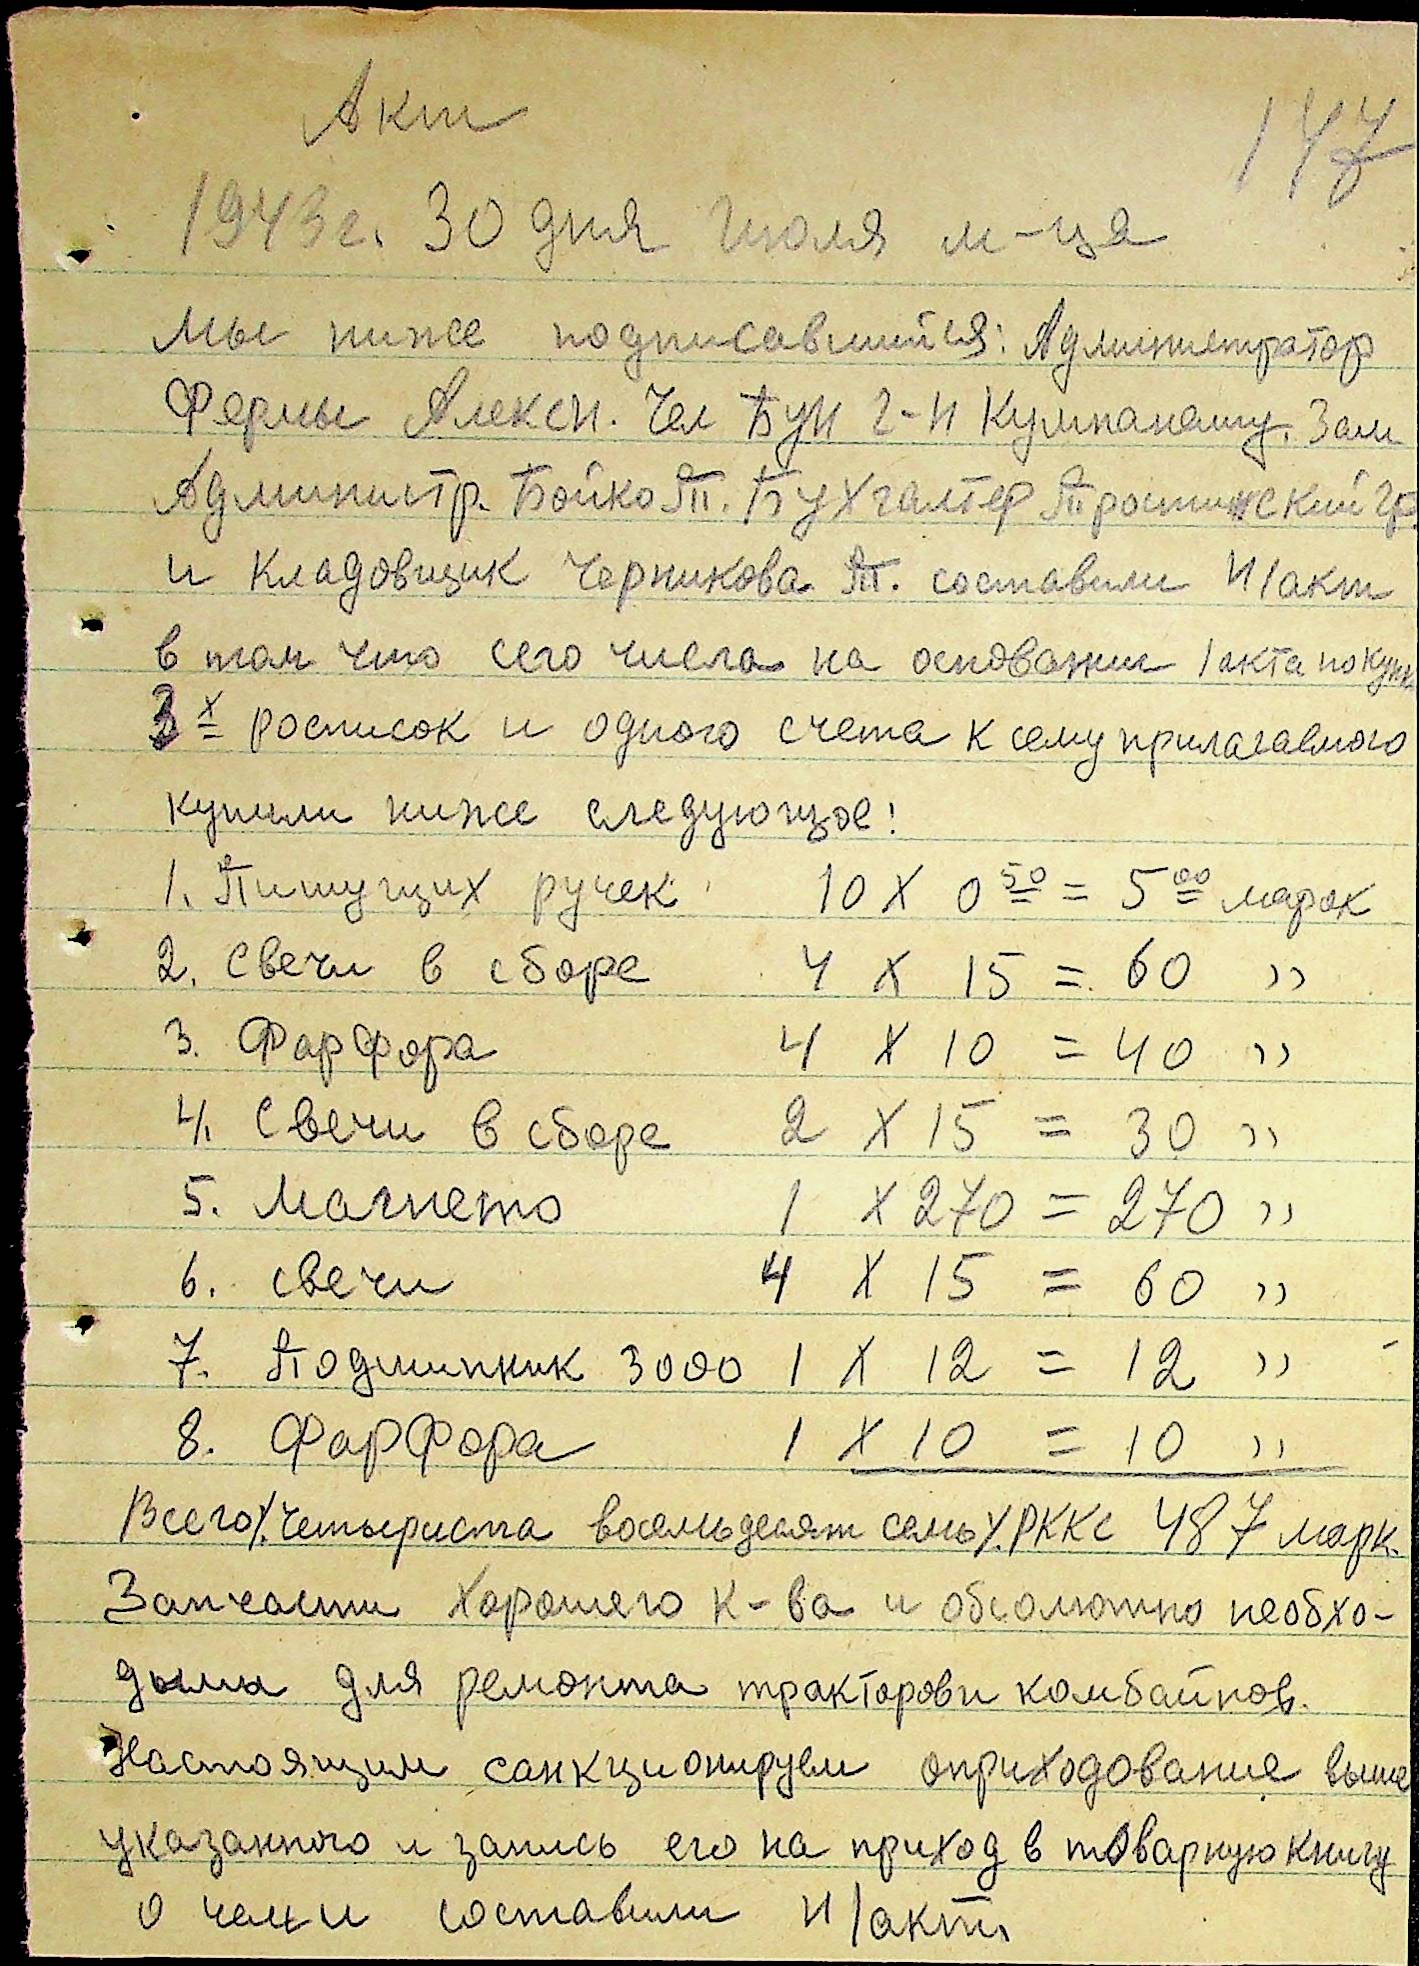 Акт
147
1943 г. 30 дня Июля м-ца
Мы ниже подписавшийся: Администратор
Фермы Алексн. Чел Бун г-н Кумпанешу. Зам
Администр. Бойко Т. Бухгалтер Тростинский Гр.
и Кладовщик Черникова Т. составили н/акт
в том что сего числа на основании 1 акта покупки
3х росписок и одного счета к сему прилагаемого
купили ниже следующое:
1. Пишущих ручек 10 х 0 50 = 5 00 марок
2. Свечи в сборе 4 х 15 = 60 "
3. Фарфора 4 х 10 = 40 "
4. Свечи в сборе 2 х 15 = 30 "
5. Магнето 1 х 270 = 270 "
6. свечи 4 х 15 = 60 "
7. Подшипник 3000 1 х 12 = 12 "
8. Фарфора 1 х 10 = 10 "
Всего /. четыриста восемьдесят семь /. РККС 487 марк.
Запчасти хорошего к-ва и обсолютно необхо-
дымы для ремонта тракторов и комбайнов.
Настоящим санкционируем оприходование выше
указанного и запись его на приход в товарную книгу
о чем и составили н/акт.